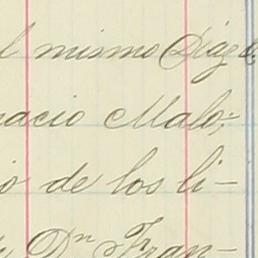 l mismo Díaz d
nacio Malo,-
ó de los li-
Dn Fran-